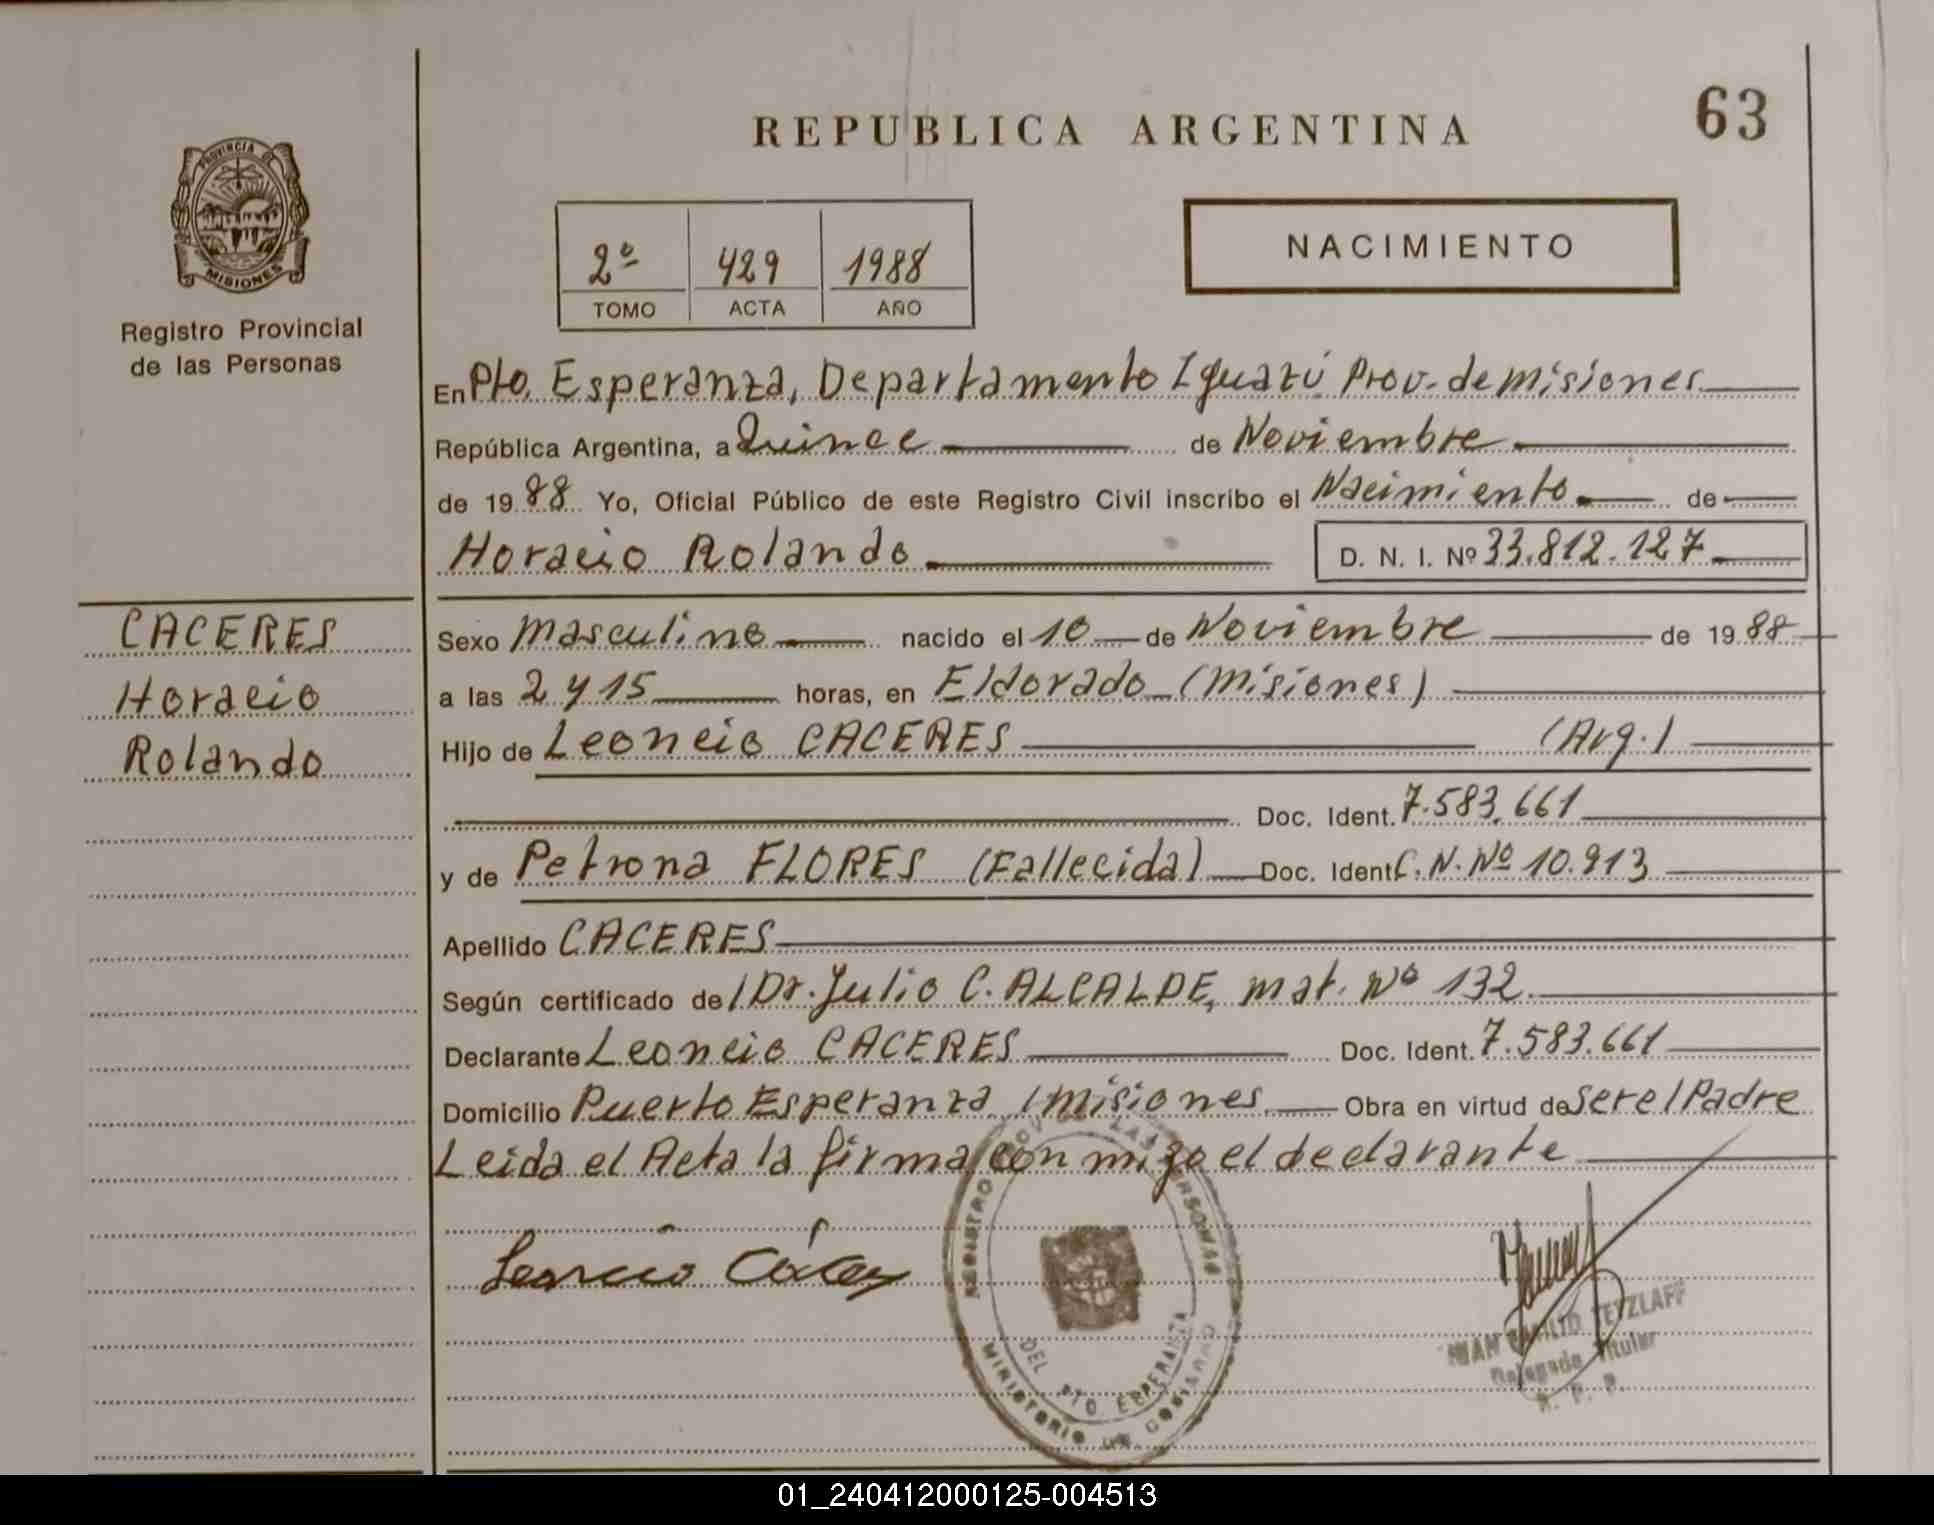 63
REPUBLICA ARGENTINA
PROVINCIA DE
MISIONES
Registro Provincial
de las Personas
NACIMIENTO
2º 429 1988
TOMO ACTA AÑO
En Pto. Esperanza, Departamento Iguazú Prov. de Misiones
República Argentina, a Quince de Noviembre
de 1988 Yo, Oficial Público de este Registro Civil inscribo el Nacimiento de
Horacio Rolando D. N. I. Nº 33.812.127
CACERES
Horacio
Rolando
Sexo Masculino nacido el 10 de Noviembre de 1988
a las 2 y 15 horas, en Eldorado (Misiones)
Hijo de Leoncio CACERES (Arg.)
Doc. Ident. 7.583.661
y de Petrona FLORES (Fallecida) Doc. Ident C.N.Nº 10.913
Apellido CACERES
Según certificado del Dr. Julio C. ALCALDE, mat. Nº 132
Declarante Leoncio CACERES Doc. Ident. 7.583.661
Domicilio Puerto Esperanza / Misiones Obra en virtud de Ser el Padre
Leida el Acta la firma con migo el declarante
Leoncio Cáceres
REGISTRO LAS PERSONAS
DEL PTO. ESPERANZA
MINISTERIO DE GOBIERNO
JUAN TETZLAFF
Delegado Titular
R. P. P.
01_240412000125-004513